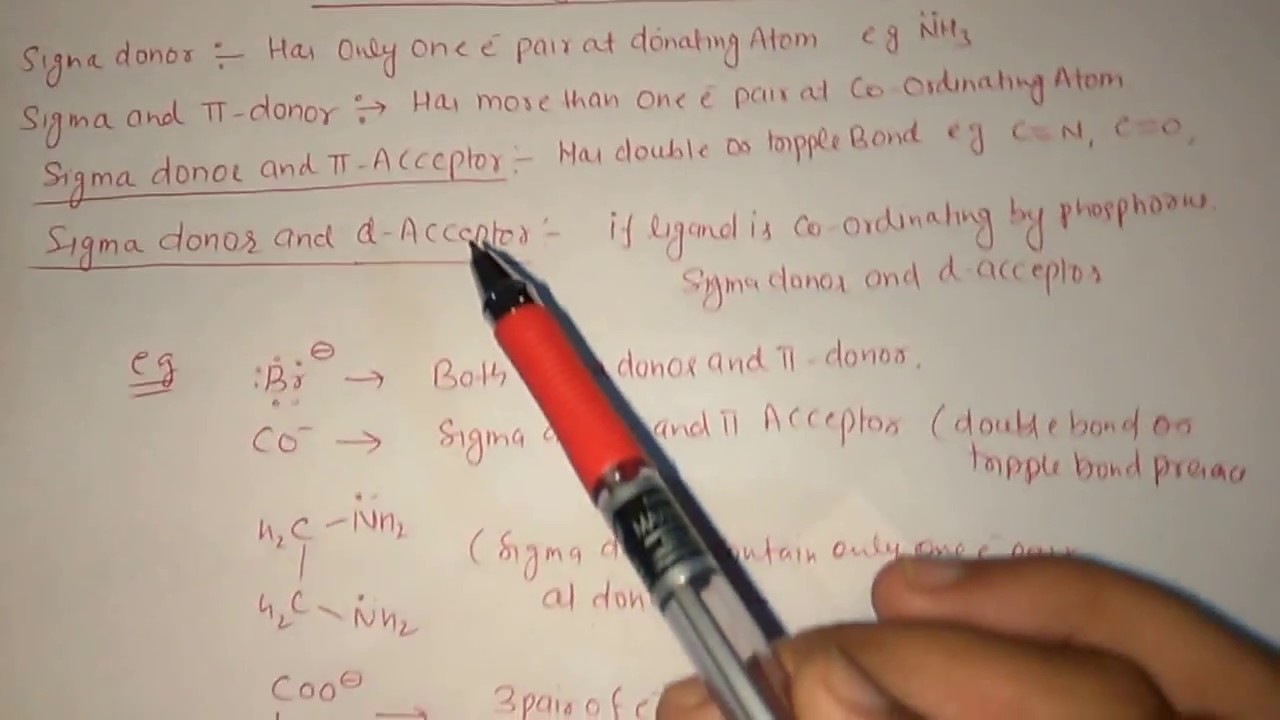 Sigma donor :- Has only one e⁻ pair at donating Atom eg N̈H3
Sigma and π-donor :→ Has more than one e⁻ pair at Co-Ordinating Atom
Sigma donor and π-Acceptor :- Has double or tripple Bond eg C≡N, C=O,
Sigma donor and d-Acceptor :- if ligand is Co-ordinating by phosphorus.
Sigma donor and d-acceptor
eg :Br⊖ → Both donor and π-donor.
CO⁻ → Sigma and π Acceptor (double bond or
tripple bond
H2C-N̈H2
(Sigma only one e⁻ pair
H2C-N̈H2
at don
COO⊖
→ 3 pair of e⁻